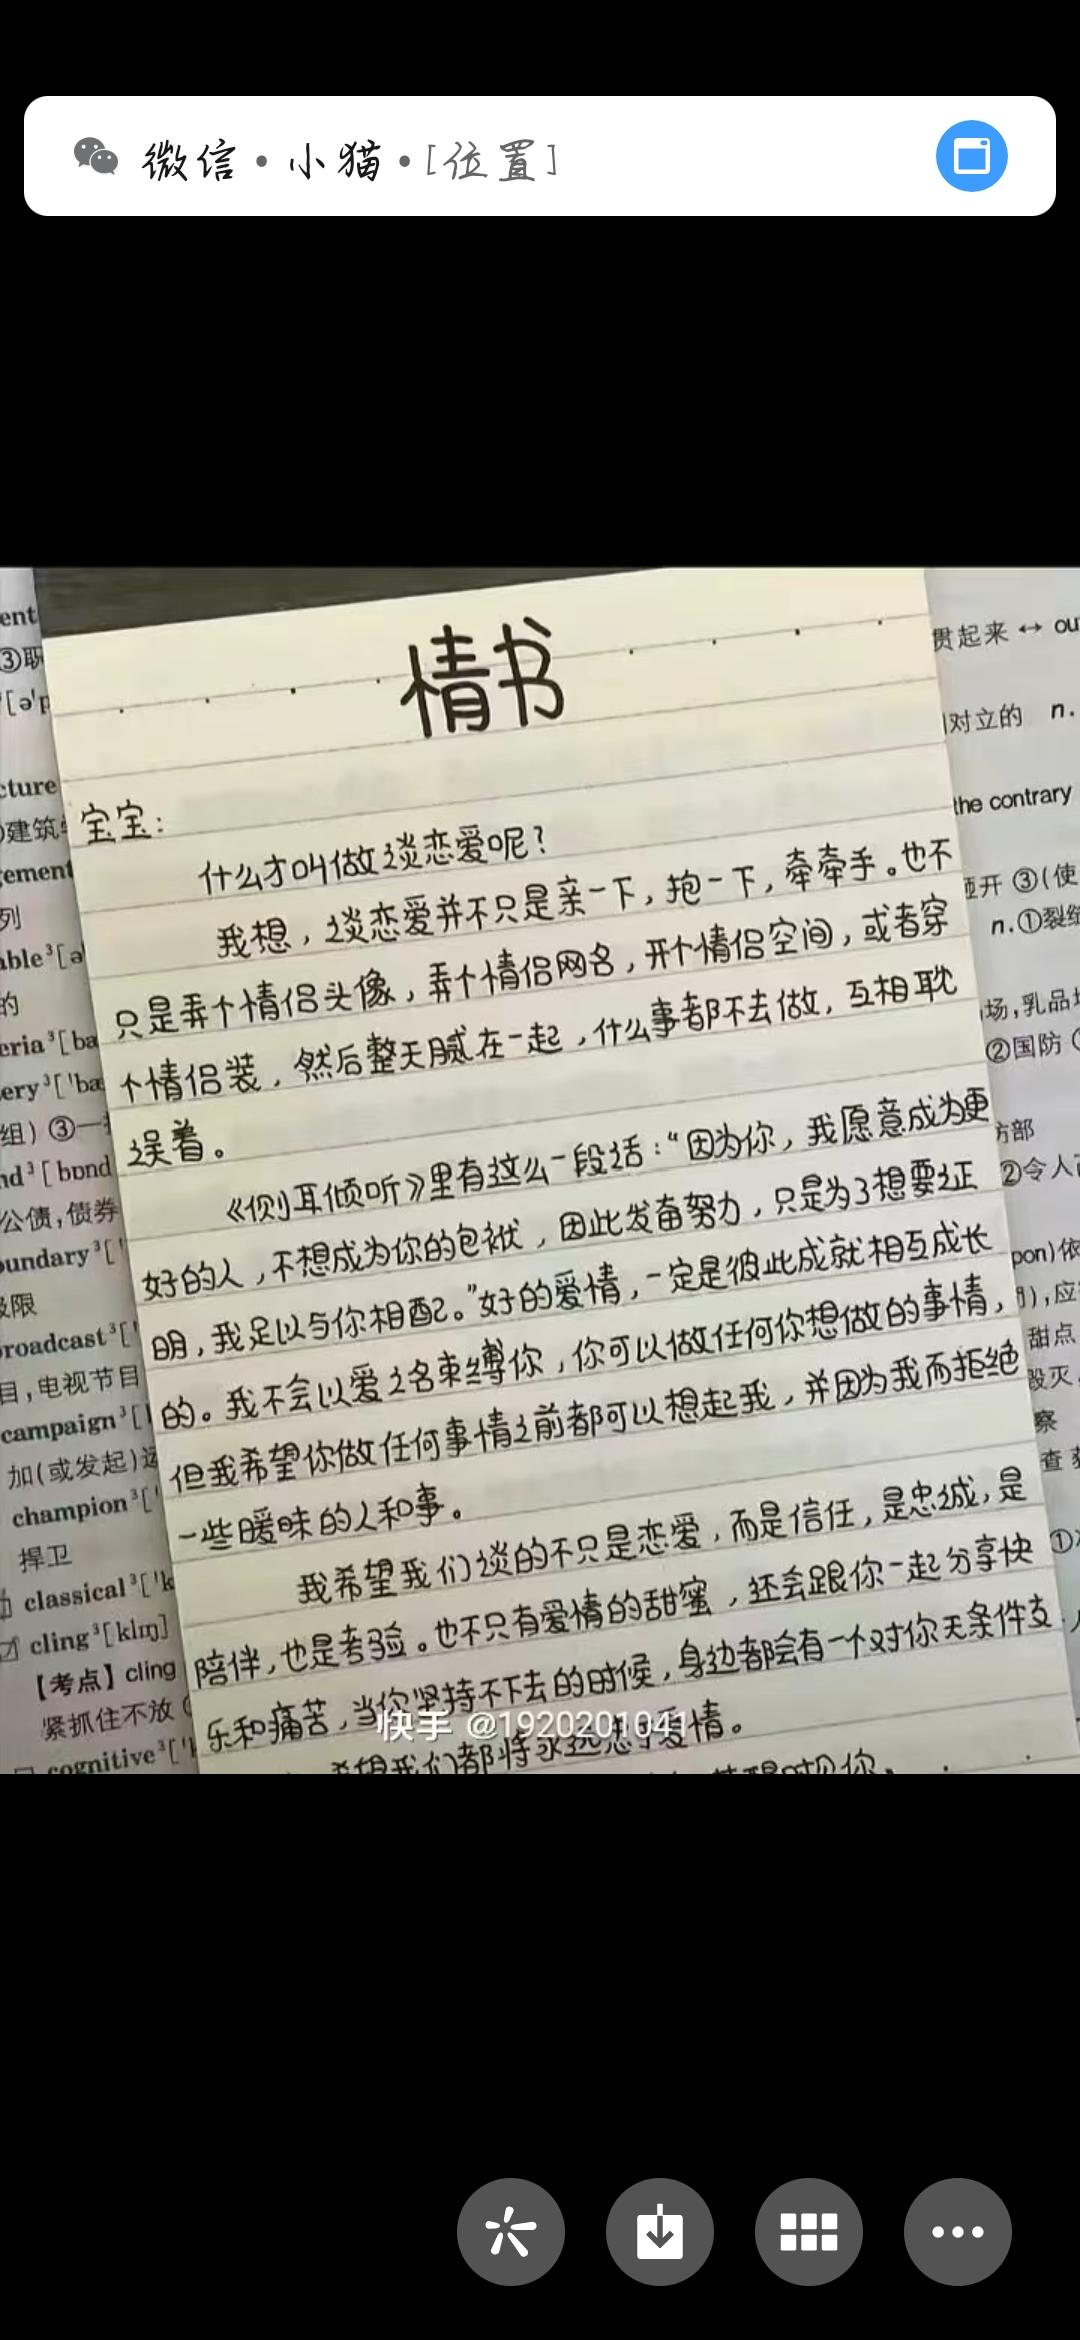 微信·小猫·[位置]
情书
宝宝：
什么才叫做谈恋爱呢？
我想，谈恋爱并不只是亲一下，抱一下，牵牵手。也不
只是弄个情侣头像，弄个情侣网名，开个情侣空间，或者穿
个情侣装，然后整天腻在一起，什么事都不去做，互相耽
误着。
《侧耳倾听》里有这么一段话："因为你，我愿意成为更
好的人，不想成为你的包袱，因此发奋努力，只是为了想要证
明，我足以与你相配。"好的爱情，一定是彼此成就相互成长
的。我不会以爱之名束缚你，你可以做任何你想做的事情，
但我希望你做任何事情之前都可以想起我，并因为我而拒绝
一些暖昧的人和事。
我希望我们谈的不只是恋爱，而是信任，是忠诚，是
陪伴，也是考验。也不只有爱情的甜蜜，还会跟你一起分享快
乐和痛苦，当你坚持不下去的时候，身边都会有一个对你无条件支
希望我们都将永远忠于爱情。
快手 @1920201041
ent
③职
[ə'p
cture
建筑
gement
列
able³[ə
的
eria³[ba
ery³['bæ
组) ③一
nd³[bɒnd
公债,债券
oundary³['
极限
roadcast³['
目,电视节目
campaign³[
加(或发起)运
champion³['
捍卫
classical³['k
cling³[klɪŋ]
【考点】cling
紧抓住不放
cognitive³['
贯起来 ↔ ou
对立的 n.
the contrary
砸开 ③(使
n.①裂
场,乳品
②国防
防部
②令人
pon)依
),应
甜点
毁灭
察
查
①